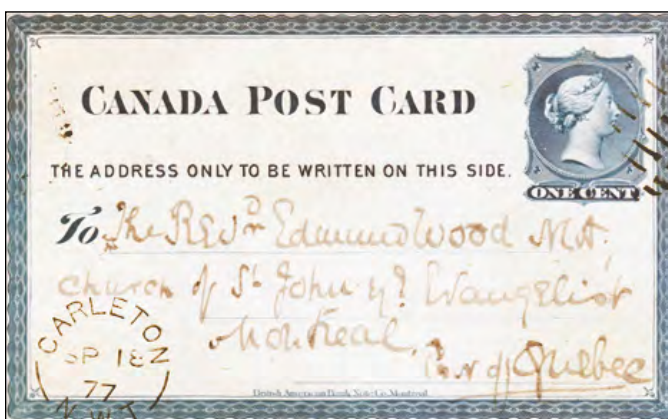 CANADA POST CARD
THE ADDRESS ONLY TO BE WRITTEN ON THIS SIDE.
ONE CENT
To The Revd Edmund Wood M.A.
Church of St John ye Evangelist
Montreal.
Prov of Quebec
CARLETON
SP 18Z
77
N.W.T
British American Bank Note Co. Montreal